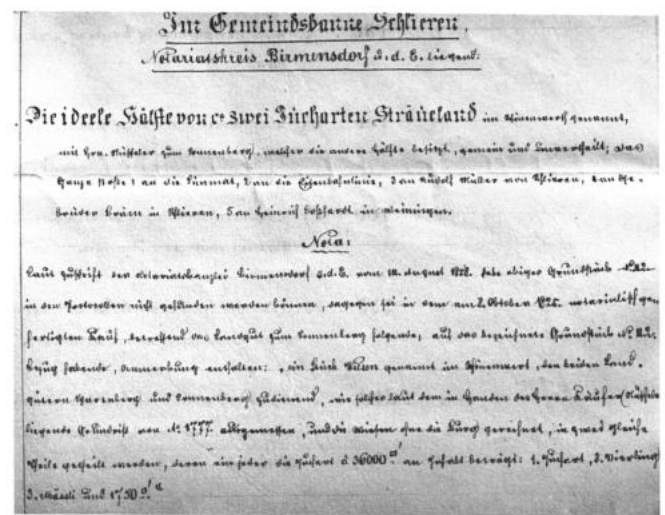 Im Gemeindsbanne Schlieren,
Notariatskreis Birmensdorf a.d. E. liegend:
Die ideele Hälfte von ca zwei Jucharten Sträueland im genannt,
mit Hrn. zum Sonnenberg, welcher die andere Hälfte besitzt, gemein und unvertheilt; das
Ganze stoße 1 an die Limmat, 2 an die Eisenbahnlinie, 3 an Rudolf Müller von Schlieren, 4 an Ge-
brüder Bräm in Schlieren, 5 an Heinrich in Weiningen.
Nota:
Laut Zuschrift der Notariatskanzlei Birmensdorf a.d. E. vom August habe obiges Grundstück
in den Protocollen nicht gefunden werden können, dagegen sei in dem am 2. October notarialisch ge-
fertigten Kauf, betreffend das Landgut zum Sonnenberg folgende, auf das bezeichnete Grundstück
bezug habende, Anmerkung enthalten: ein Stück genannt im , den beiden Land-
gütern und Sonnenberg zudienend, wie solches laut dem in Handen des Herrn Käufer
liegende Grundriß von Ao 1777 abgemessen, und die Wiesen ohne die gerechnet, in zwei gleiche
Theile getheilt werden, deren ein jeder die Juchart à 36000 □' an Inhalt beträgt: 1. Juchart, 3. Vierling
3. Mässli und 1750 □'